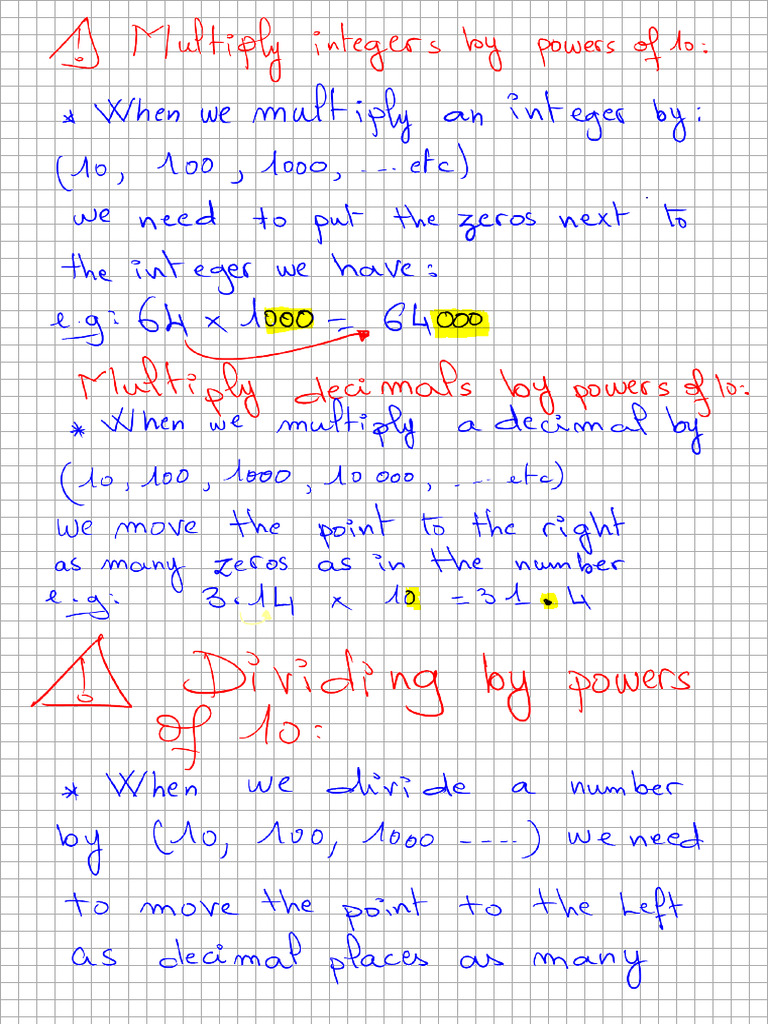 ! Multiply integers by powers of 10:
* When we multiply an integer by:
(10, 100, 1000, ... etc)
we need to put the zeros next to
the integer we have:
e.g: 64 x 1000 = 64000
Multiply decimals by powers of 10:
* When we multiply a decimal by
(10, 100, 1000, 10 000, ... etc)
we move the point to the right
as many zeros as in the number
e.g: 3.14 x 10 = 31.4
! Dividing by powers
of 10:
* When we divide a number
by (10, 100, 1000 ----) we need
to move the point to the Left
as decimal places as many